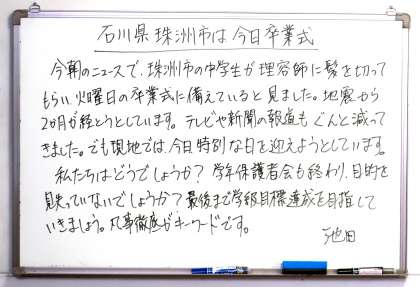 石川県珠洲市は今日卒業式
今朝のニュースで、珠洲市の中学生が理容師に髪を切って
もらい火曜日の卒業式に備えていると見ました。地震から
2か月が経とうとしています。テレビや新聞の報道もぐんと減って
きました。でも現地では、今日特別な日を迎えようとしています。
私たちはどうでしょうか？学年保護者会も終わり、目的を
見失っていないでしょうか？最後まで学級目標達成を目指して
いきましょう。凡事徹底がキーワードです。
池田